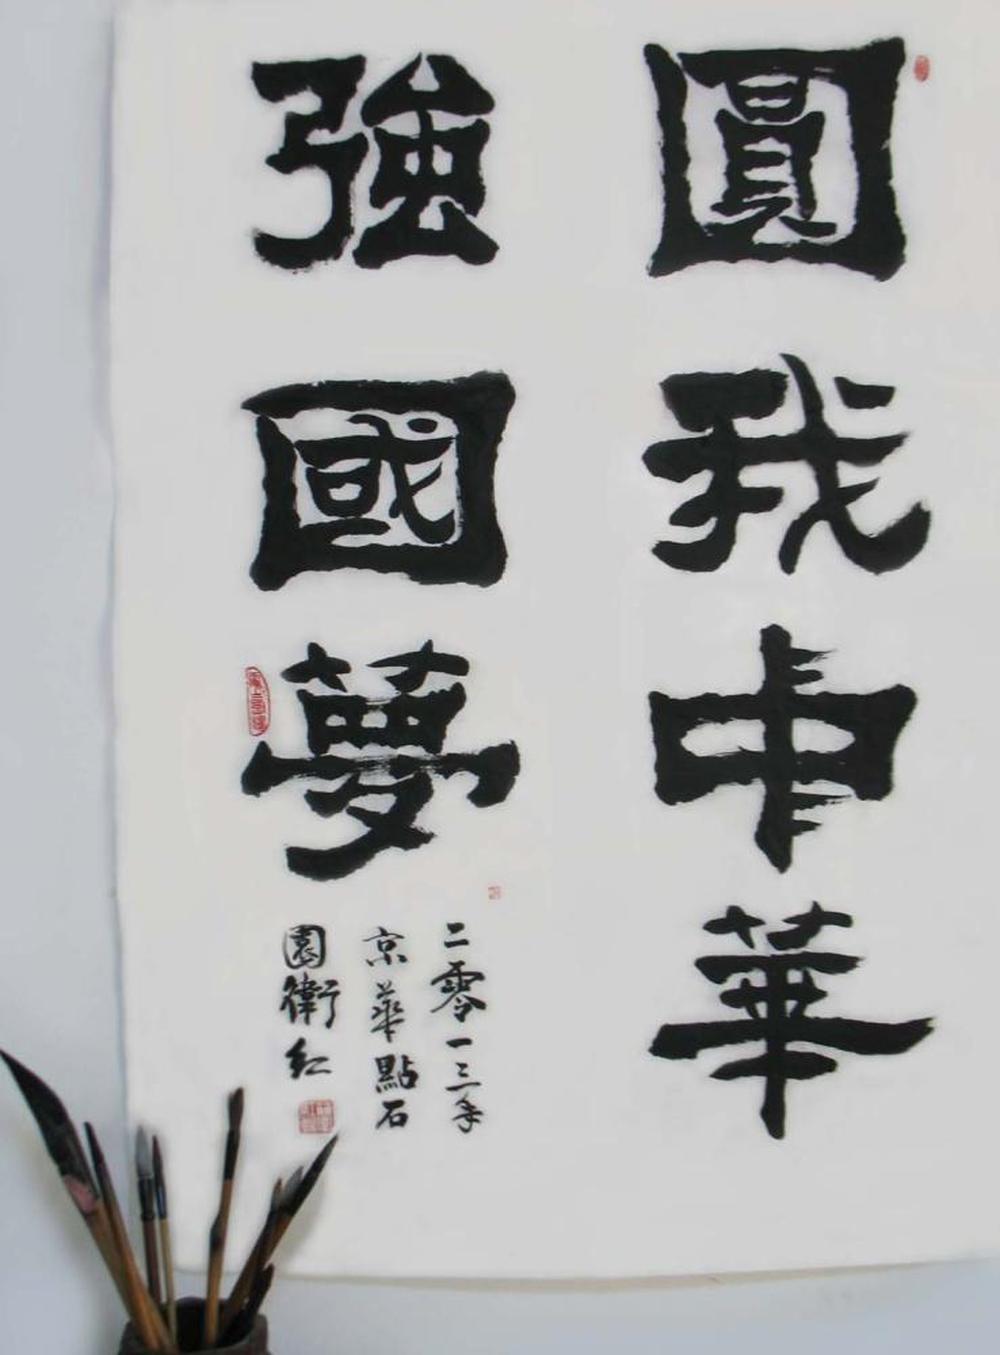 圓我中華
強國夢
二零一三年
京華點石
園衛紅